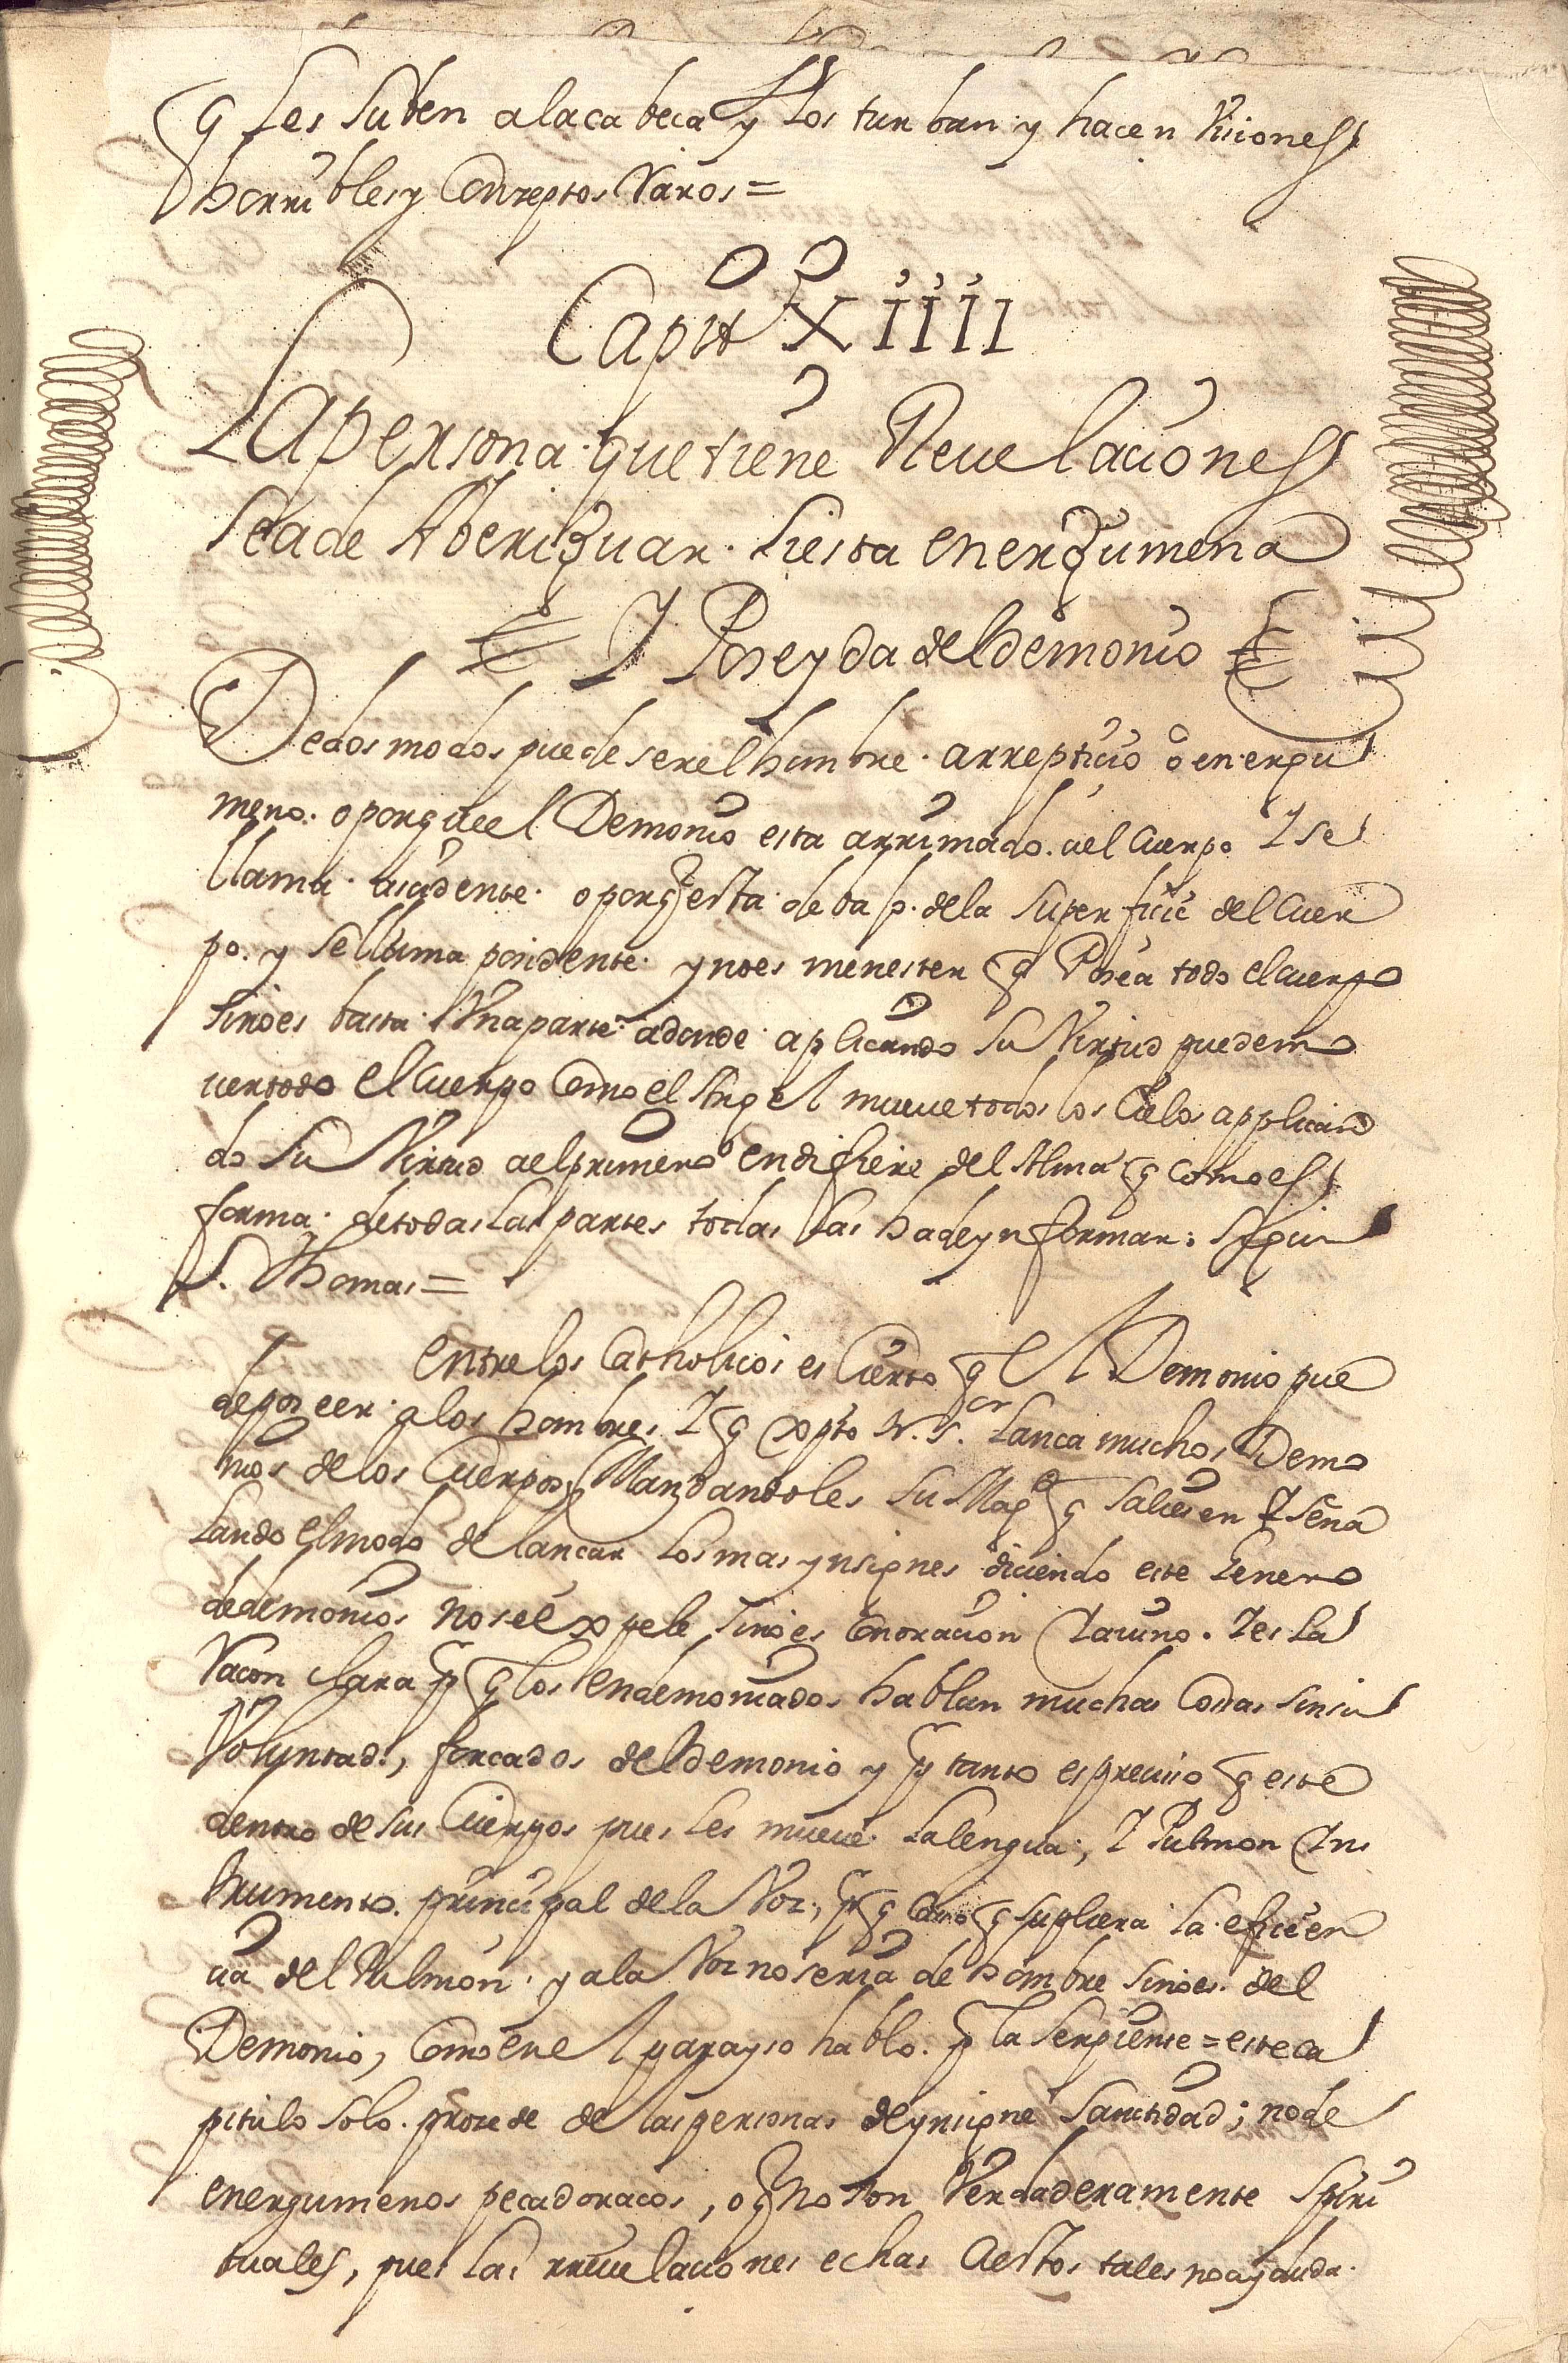 q les suben a la cabeca y los turban y hacen Visiones
horribles y Conceptos Varios =
Capit.º XIIII
La persona que tiene Revelaciones
sea de Aberiguar si esta energumena
Y Poseyda del demonio
De dos modos puede ser el hombre arrepticio ò energu
meno. o porque el Demonio esta arrimado ael cuerpo Y se
llama acidente o porq esta debajo de la superficie del cuer
po. y se llama posidente y no es menester q Posea todo el cuerpo
sino es basta Una parte adonde aplicando su Virtud puede mo
ver todo el cuerpo Como el Angel mueve todos los Cielos applican
do su Virtud ael primero en difiere del Alma q como es
forma de todas las partes todas las ha de ynformar. segun
S. Thomas =
Entre los Catholicos es Cierto q el Demonio pue
de poseer a los hombres. Y q xpto N. Sr. Lanca muchos Demo
nios de los Cuerpos Mandandoles su Magd q saliesen Y sena
lando el modo de lancar los mas ynsignes diciendo este Genero
de demonios no se expele sino es Con oracion Y ayuno. Y es la
Racon clara p q los endemoniados hablan muchas Cosas sin su
Voluntad, forcados del demonio y p tanto es preciso q este
dentro de sus Cuerpos pues les mueve la lengua, Y Pulmon Yns
trumento principal de la Voz, p q Caso q supliera la eficien
cia del Pulmon y a la Voz no seria de hombre sino es del
Demonio, Como en el parayso hablo p la serpiente = este ca
pitulo solo procede de las personas de ynsigne santidad; no de
energumenos pecadoracos, o q no son Verdaderamente spiri
tuales, pues las rrevelaciones echas a estos tales no ay duda